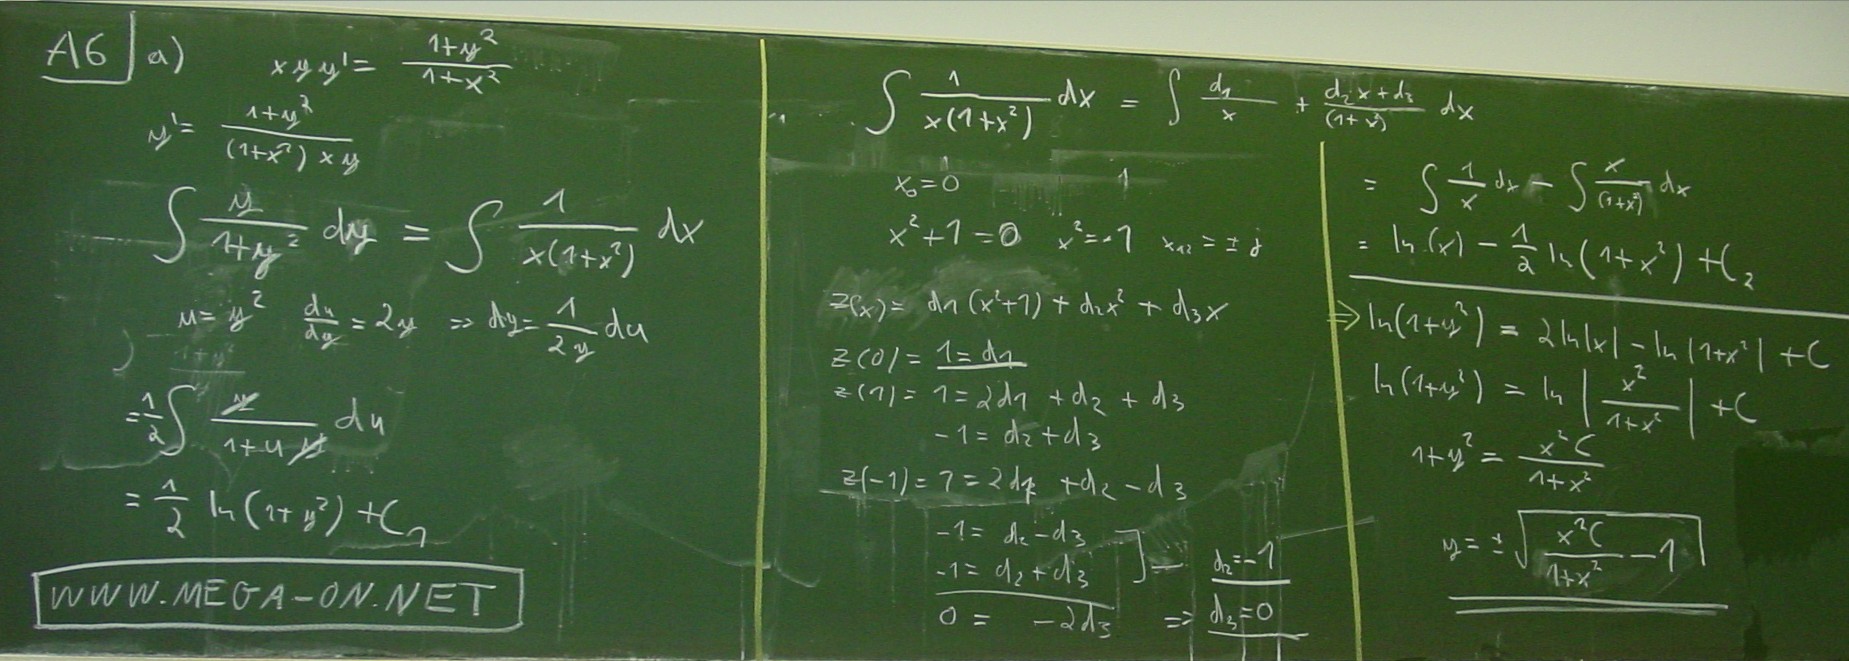 A6 a) xyy' = (1+y²)/(1+x²)
y' = (1+y²)/((1+x²)xy)
∫ y/(1+y²) dy = ∫ 1/(x(1+x²)) dx
u = y² du/dy = 2y ⇒ dy = 1/(2y) du
= 1/2 ∫ y/(1+u y) du
= 1/2 ln(1+y²) + C₁
WWW.MEGA-ON.NET
∫ 1/(x(1+x²)) dx = ∫ d₁/x + (d₂x+d₃)/(1+x²) dx
x₀ = 0 1
x²+1 = 0 x² = -1 x₁₂ = ± j
z(x) = d1 (x²+1) + d₂x² + d₃x
z(0) = 1 = d1
z(1) = 1 = 2d1 + d₂ + d₃
-1 = d₂ + d₃
z(-1) = 1 = 2d1 + d₂ - d₃
-1 = d₂ - d₃
-1 = d₂ + d₃ ] = d₂ = -1
0 = -2d₃ ⇒ d₃ = 0
= ∫ 1/x dx - ∫ x/(1+x²) dx
= ln(x) - 1/2 ln(1+x²) + C₂
⇒ ln(1+y²) = 2 ln|x| - ln|1+x²| + C
ln(1+y²) = ln |x²/(1+x²)| + C
1+y² = x²C/(1+x²)
y = ± √(x²C/(1+x²) - 1)